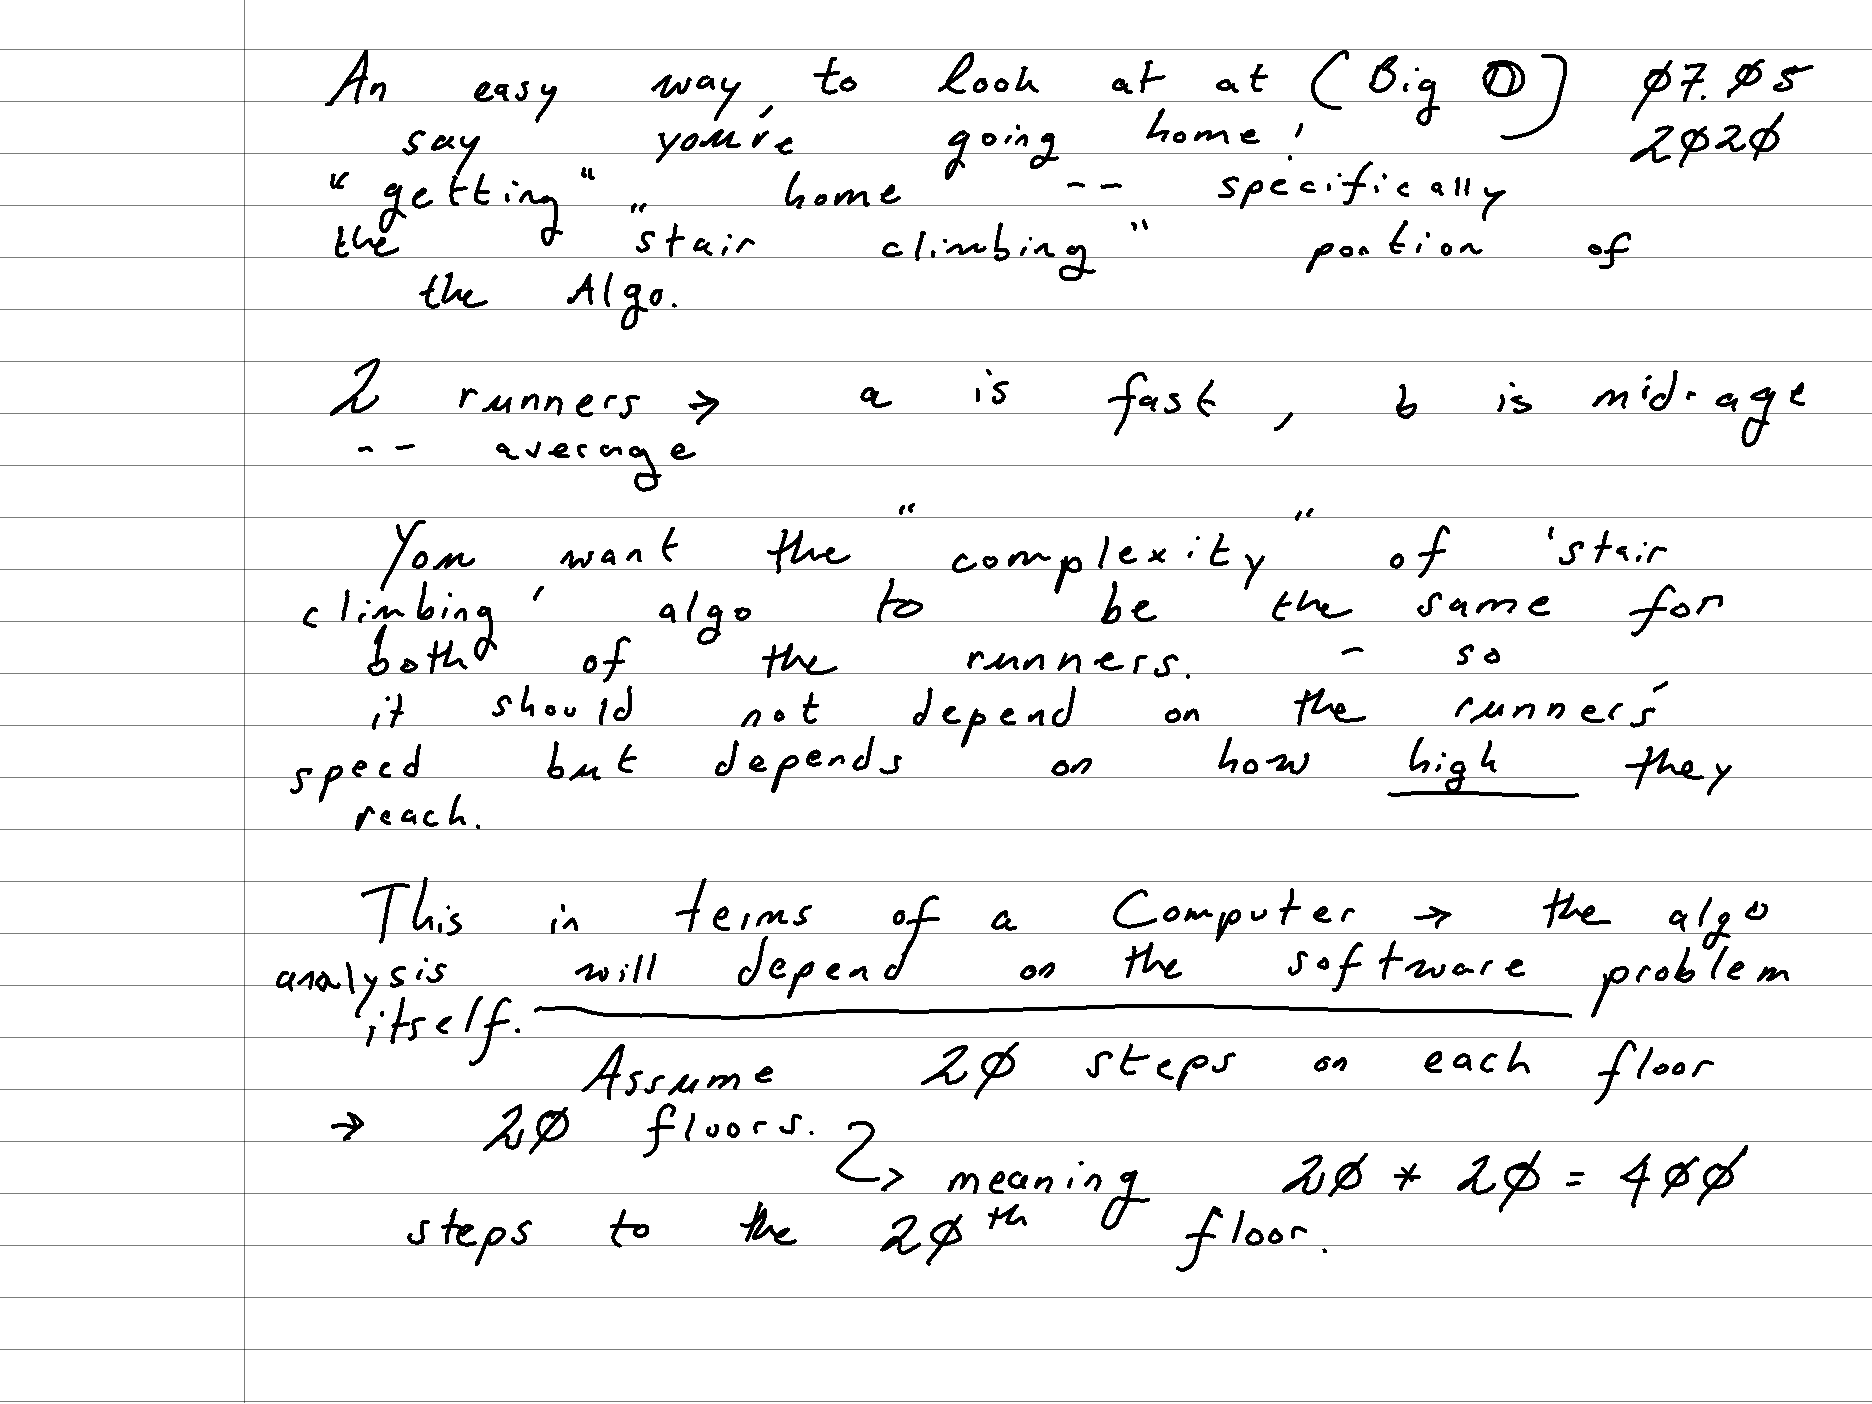 An easy way, to look at at (Big O) 07.05
say you're going home! 2020
"getting" home -- specifically
the "stair climbing" portion of
the Algo.
2 runners → a is fast, b is mid-age
-- average
You want the "complexity" of 'stair
climbing' algo to be the same for
both of the runners. - so
it should not depend on the runner's
speed but depends on how high they
reach.
This in terms of a Computer → the algo
analysis will depend on the software problem
itself.
Assume 20 steps on each floor
→ 20 floors.
↳ meaning 20 * 20 = 400
steps to the 20th floor.